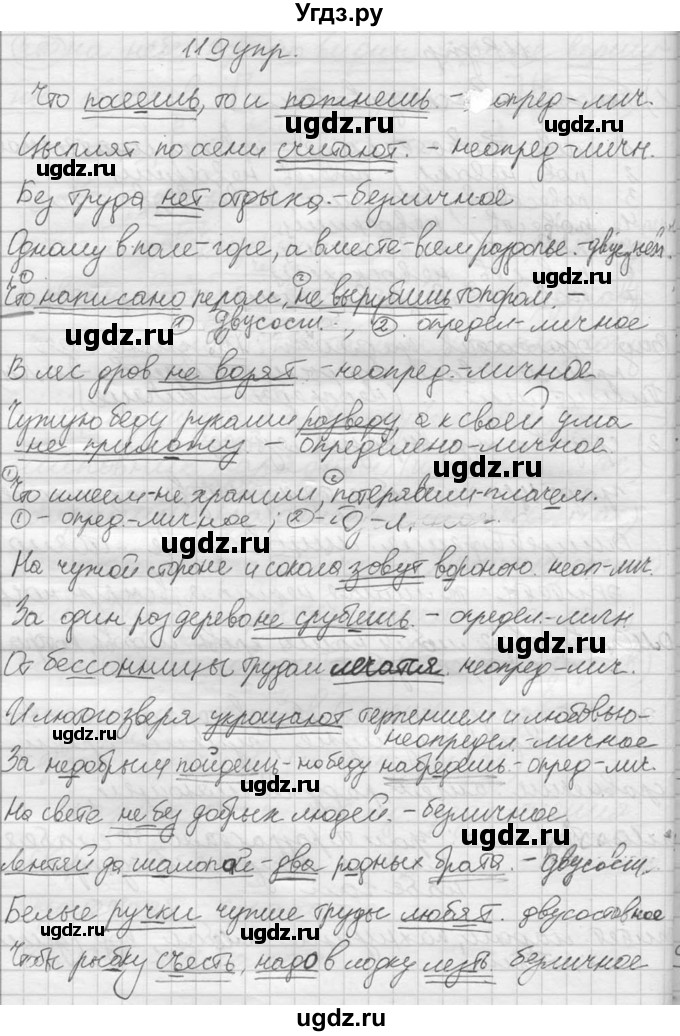 Угдз.ру
119 упр.
Что посеешь, то и пожнешь. - опред-лич.
ugdz.ru ugdz.ru
Цыплят по осени считают. - неопред-личн.
ugdz.ru
Без труда нет отдыха. - безличное
Одному в поле - горе, а вместе - всем раздолье. -
ugdz.ru
① ②
Что написано пером, не вырубишь топором. -
ugdz.ru
① двусост., ② определ-личное
В лес дров не возят - неопред.-личное.
ugdz.ru ugdz.ru
Чужую беду руками разведу, а к своей ума
не приложу - определено-личное.
ugdz.ru
① ②
Что имеем - не храним, потерявши - плачем.
① - опред-личное; ② - О-л.
ugdz.ru
На чужой стороне и сокола зовут вороною. неоп-лич.
ugdz.ru
За один раз дерево не срубишь. - определ-личн
ugdz.ru
От бессонницы трудом лечатся. неопред-лич.
ugdz.ru
И лютого зверя укрощают терпением и любовью -
ugdz.ru
неопредел-личное
За недобрым пойдешь - на беду набредешь - опред-лич.
ugdz.ru
На свете не без добрых людей. - безличное
ugdz.ru
Лентяй да шалопай - два родных брата. - двусост.
ugdz.ru
Белые ручки чужие труды любят. двусоставное
ugdz.ru ugdz.ru
Чтобы рыбку съесть, надо в лодку лезть безличное
ugdz.ru